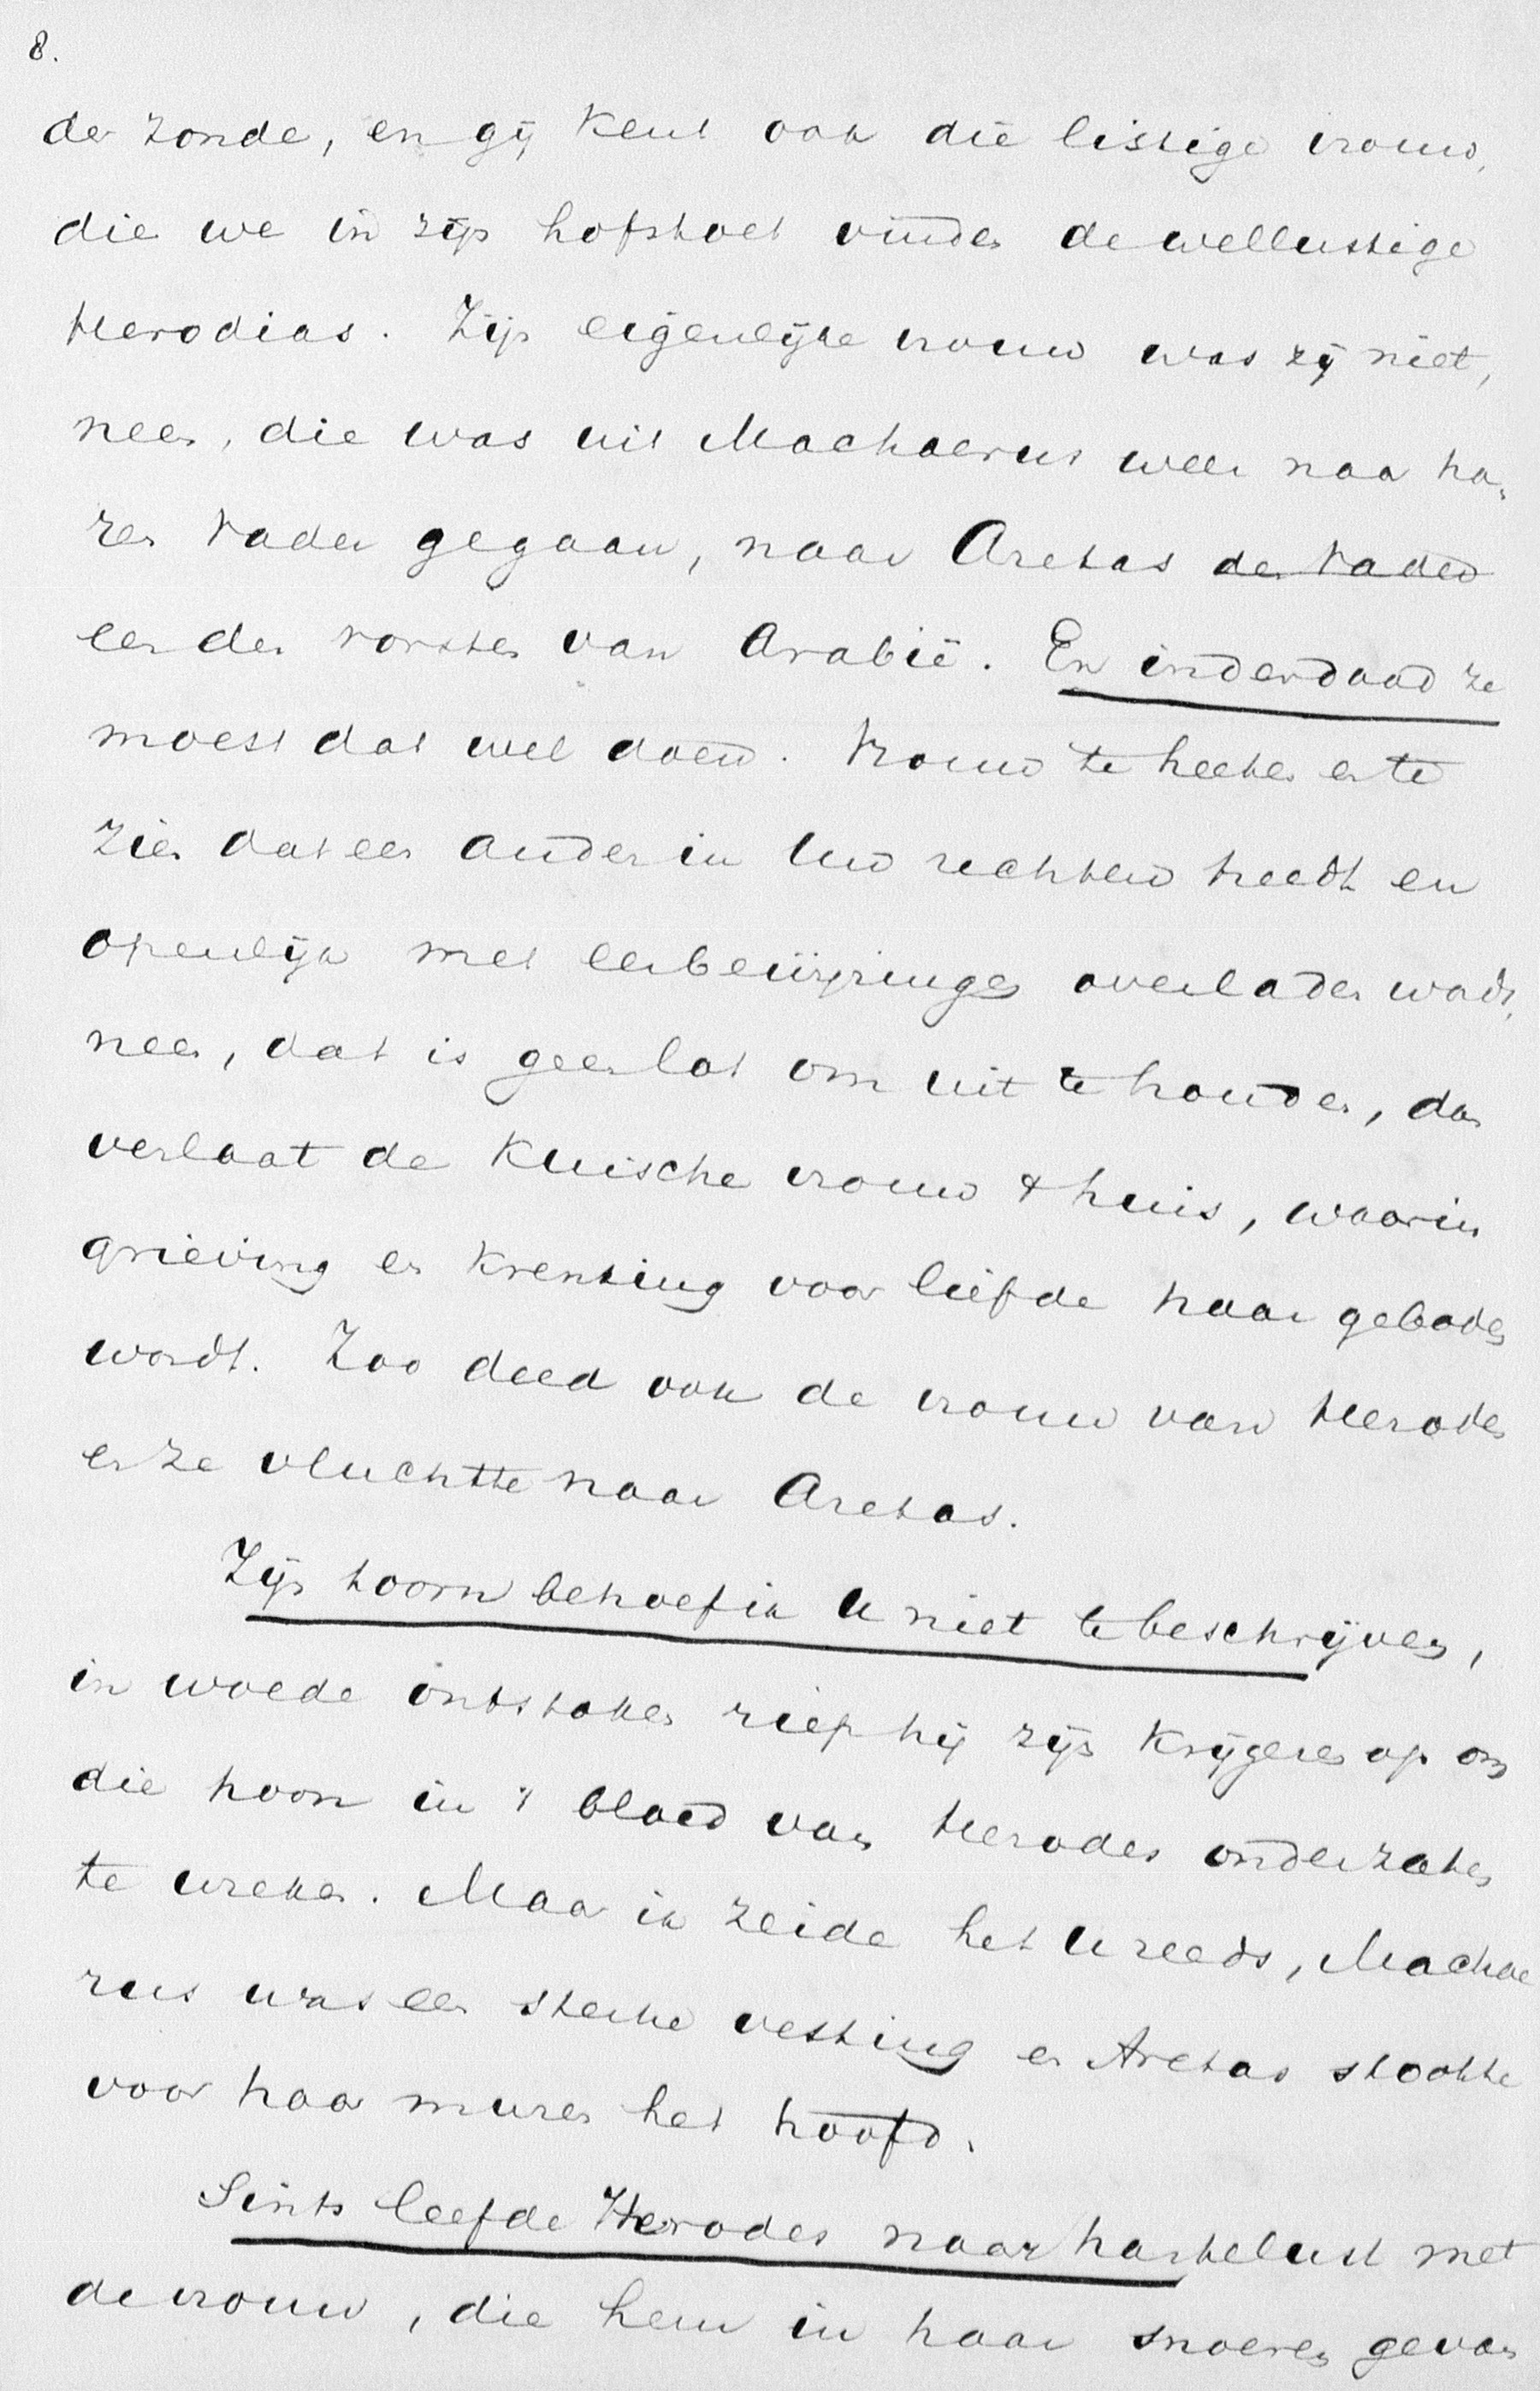 8.
der zonde, en gij kent ook die listige vrouw,
die we in zijn hofstoet vinden de wellustige
Herodias. Zijn eigenlijke vrouw was zij niet,
neen, die was uit Machaerus weer naar ha-
ren vader gegaan, naar Aretas den vader
een der vorsten van Arabië. En inderdaad ze
moest dat wel doen. Vrouw te heeten en te
zien dat een ander in Uw rechten treedt en
openlijk met eerbewijzingen overladen wordt,
neen, dat is geen lot om uit te houden, dan
verlaat de kuische vrouw 't huis, waarin
grieving en krenking voor liefde haar geboden
wordt. Zoo deed ook de vrouw van Herodes
en ze vluchtte naar Aretas.
Zijn toorn behoef ik U niet te beschrijven,
in woede ontstoken riep hij zijn krijgeren op om
die hoon in 't bloed van Herodes onderzaten
te wreken. Maar ik zeide het U reeds, Machae
rus was een sterke vesting en Aretas stootte
voor haar muren het hoofd.
Sints leefde Herodes naar hartelust met
de vrouw, die hem in haar snoeren gevan